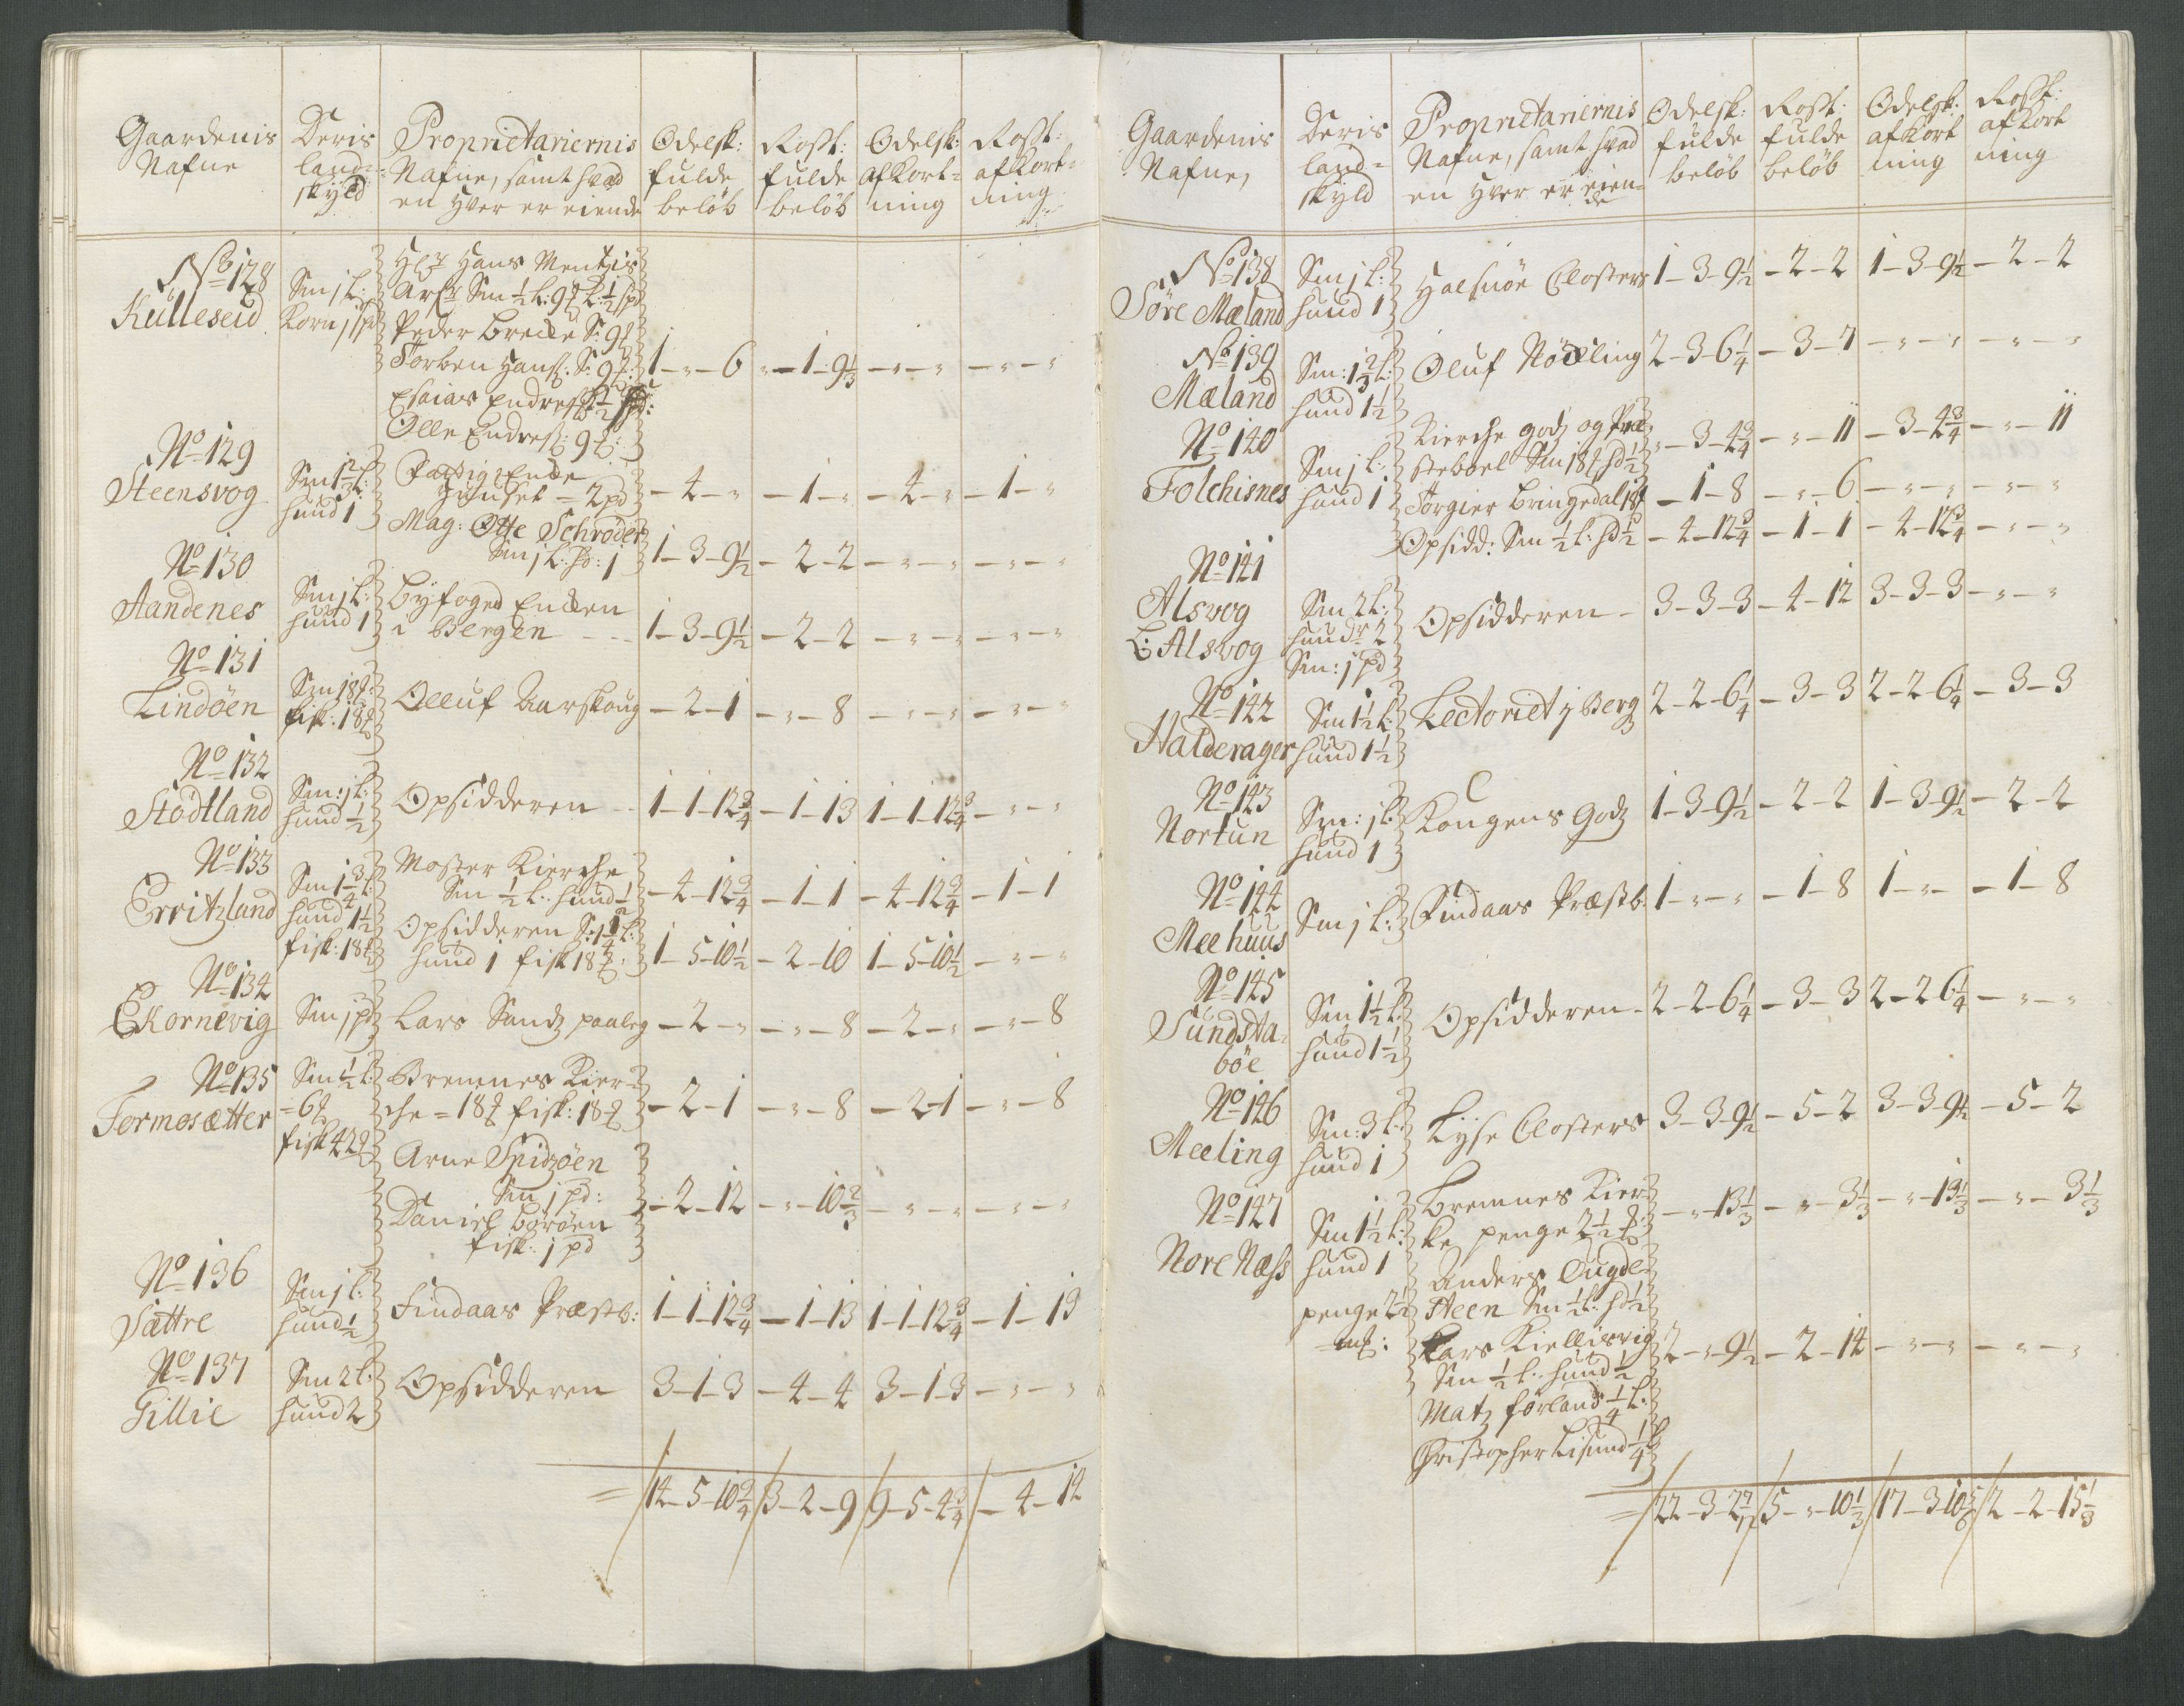 Gaardenis Nafne
Deris land= skyld
Proprietariernis Nafne, samt hvad en hver er eiende
Odelsk: fulde beløb
Rost: fulde beløb
Odelsk: afkort= ning
Rost: afkort= ning
No 128
Kulleseid
Sm 1 L:
Korn 1 spd
Hans Mentzis
Arf: Sm ½ L: 9
Peder Brecke S: 9
Torben Hans: S: 9
Esaias Endres
Olle Endres: 9
1 - " - 6 " - 1 - 9⅓ - " - " - " - "
No 129
Steensvog
Sm 1⅔ L:
hund 1
Fattig Encke
Huuset = 2 pd - 4 - " - 1 - " - 4 - " - 1 - "
Mag: Otte Schrøder
Sm 1 L: hd: 1 1 - 3 - 9½ - 2 - 2 - " - " - " - "
No 130
Aandenes
Sm 1 L:
hund 1
Byfoged Encken
i Bergen 1 - 3 - 9½ - 2 - 2 - " - " - " - "
No 131
Lindøen
Sm 18
fisk: 18
Olluf Aarskoug - 2 - 1 - " - 8 - " - " - " - "
No 132
Stødtland
Sm: 1 L:
hund ½
Opsidderen 1 - 1 - 12¾ - 1 - 13 1 - 1 - 12¾ - " - "
No 133
Erritzland
Sm 1¾ L:
hund 1½
fisk: 18
Moster Kierche
Sm ½ L: hund ½ - 4 - 12¾ - 1 - 1 - 4 - 12¾ - 1 - 1
Opsidderen S: 1¼ L:
hund 1 fisk 18 1 - 5 - 10½ - 2 - 10 1 - 5 - 10½ - " - "
No 134
Ekornevig
Sm 1 pd
Lars Sandz paaleg - 2 - " - " - 8 - 2 - " - " - 8
No 135
Tormosætter
Sm ½ L:
= 6
fisk 42
Bremnes Kier=
che = 18 fisk: 18 - 2 - 1 - " - 8 - 2 - 1 - " - 8
Arne Spidzøen
Sm 1 pd:
Daniel Borøen
fisk: 1 pd
- 2 - 12 - " - 10⅔ - " - " - " - "
No 136
Sættre
Sm 1 L:
hund ½
Findaas Præstb: 1 - 1 - 12¾ - 1 - 13 1 - 1 - 12¾ - 1 - 13
No 137
Gillie
Sm 2 L:
hund 2
Opsidderen 3 - 1 - 3 - 4 - 4 3 - 1 - 3 - " - "
= / 14 - 5 - 10¾ / 3 - 2 - 9 / 9 - 5 - 4¾ / - 4 - 14
Gaardenis Nafne,
Deris land= skyld
Proprietariernis Nafne, samt hvad en hver er eien= de
Odelsk: fulde beløb
Rost: fulde beløb
Odelsk: afkort ning
Rost: afkort ning
No 138
Søre Mæland
Sm 1 L:
hund 1
Halsnöe Closters 1 - 3 - 9½ - 2 - 2 1 - 3 - 9½ - 2 - 2
No 139
Mæland
Sm: 1⅔ L:
hund 1½
Oluf Nödling 2 - 3 - 6¼ - 3 - 7 - " - " - " - "
No 140
Folchisnes
Sm 1 L:
hund 1
Kierche godz og Præ
steboel Sm 18 hd ½ " - 3 - 4¾ - " - 11 - 3 - 4¾ - " - 11
Torgier Bringedal 18 - 1 - 8 - " - 6 - " - " - " - "
Opsidd: Sm ½ L: hd ½ - 4 - 12¾ - 1 - 1 - 4 - 12¾ - " - "
No 141
Alsvog
L: Alsvog
Sm 2 L:
hund 2
Sm: 1 pd
Opsidderen - 3 - 3 - 3 - 4 - 12 3 - 3 - 3 - " - "
No 142
Halderager
Sm 1½ L:
hund 1½
Lectoriet j Berg 2 - 2 - 6¼ - 3 - 3 2 - 2 - 6¼ - 3 - 3
No 143
Nortun
Sm: 1 L:
hund 1
Kongens Godz 1 - 3 - 9½ - 2 - 2 1 - 3 - 9½ - 2 - 2
No 144
Meehuus
Sm 1 L:
Findaas Præstb: 1 - " - " - 1 - 8 1 - " - - 1 - 8
No 145
Sundsta=
bøe
Sm 1½ L:
hund 1½
Opsidderen - 2 - 2 - 6¼ - 3 - 3 2 - 2 6¼ - " - "
No 146
Meeling
Sm: 3 L:
hund 1
Lyse Closters 3 - 3 - 9½ - 5 - 2 3 - 3 - 9½ - 5 - 2
No 147
Nore Næss
Sm 1½ L:
hund 1
penge 2½
mk:
Bremnes Kier=
ke penge 2½ - " - 13⅓ - " - 3⅓ - " - 13⅓ - " - 3⅓
Anders Ougde=
steen Sm ½ L: hd ½
Lars Kiellisvig
Sm ½ L: hund ½
2 - " - 9½ - 2 - 14 - " - " - " - "
Matz Førland ¼ L:
Christopher Lisund ¼
= / 22 - 3 - 2 / 5 - " - 10⅓ / 17 - 3 - 10⅚ / 2 - 2 - 15⅓